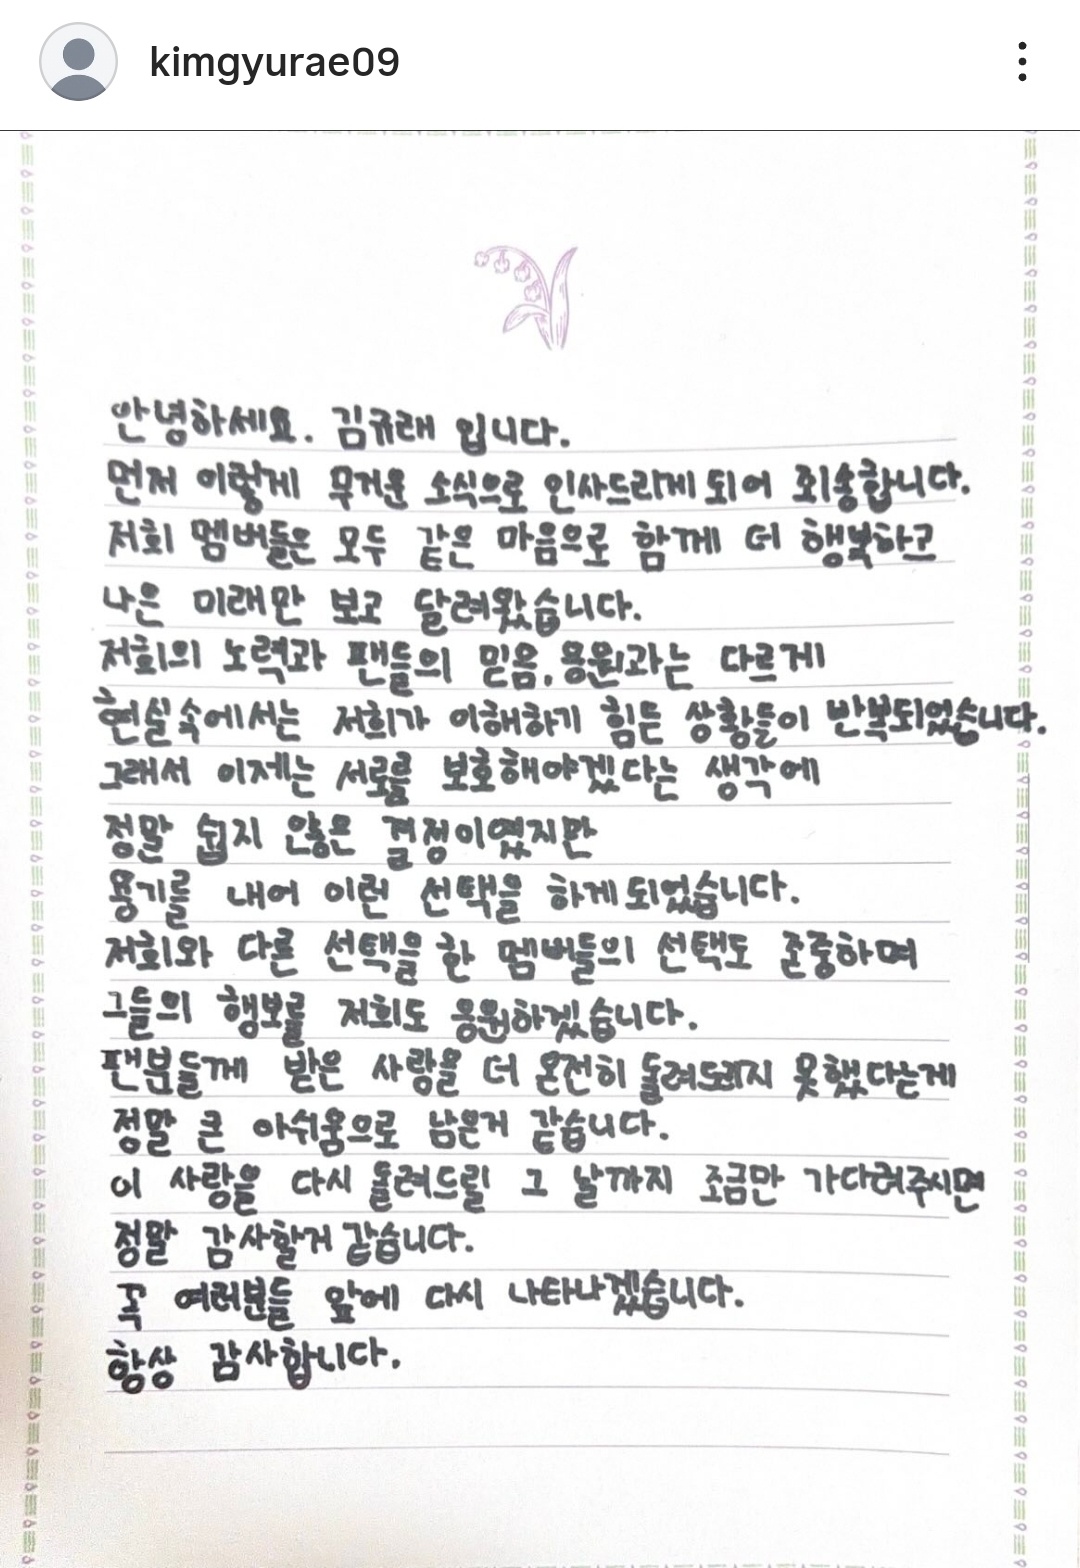 kimgyurae09
안녕하세요. 김규래 입니다.
먼저 이렇게 무거운 소식으로 인사드리게 되어 죄송합니다.
저희 멤버들은 모두 같은 마음으로 함께 더 행복하고
나은 미래만 보고 달려왔습니다.
저희의 노력과 팬들의 믿음, 응원과는 다르게
현실속에서는 저희가 이해하기 힘든 상황들이 반복되었습니다.
그래서 이제는 서로를 보호해야겠다는 생각에
정말 쉽지 않은 결정이였지만
용기를 내어 이런 선택을 하게 되었습니다.
저희와 다른 선택을 한 멤버들의 선택도 존중하며
그들의 행보를 저희도 응원하겠습니다.
팬분들께 받은 사랑을 더 온전히 돌려드리지 못했다는게
정말 큰 아쉬움으로 남은거 같습니다.
이 사랑을 다시 돌려드릴 그 날까지 조금만 기다려주시면
정말 감사할거 같습니다.
꼭 여러분들 앞에 다시 나타나겠습니다.
항상 감사합니다.